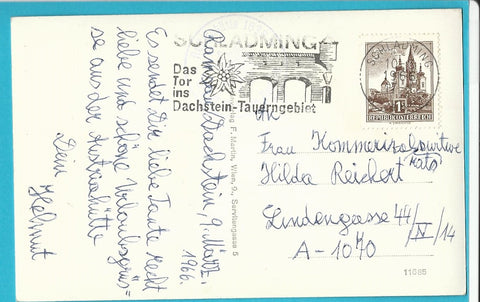 SCHLADMING
Das
Tor
ins
Dachstein-Tauerngebiet
SCHLADMING
1S
REPUBLIK ÖSTERREICH
Ramsau/Dachstein, 9. März
1966.
Es sendet Dir liebe Tante recht
liebe und schöne Urlaubsgrüs=
se aus der Austriahütte
Dein
Helmut
F. Martin, Wien, 9., Servitengasse 5
Frau
Hilda Reichert
Lindengasse 44/IV/14
A-1070
11085